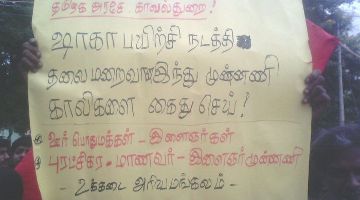 தமிழக அரசே காவல்துறை!
ஷாகா பயிற்சி நடத்தி
தலைமறைவான இந்து முன்னணி
காலிகளை கைது செய்!
ஊர் பொதுமக்கள் - இளைஞர்கள்
புரட்சிகர - மாணவர் - இளைஞர் முன்னணி
- உக்கடை அரியமங்கலம் -